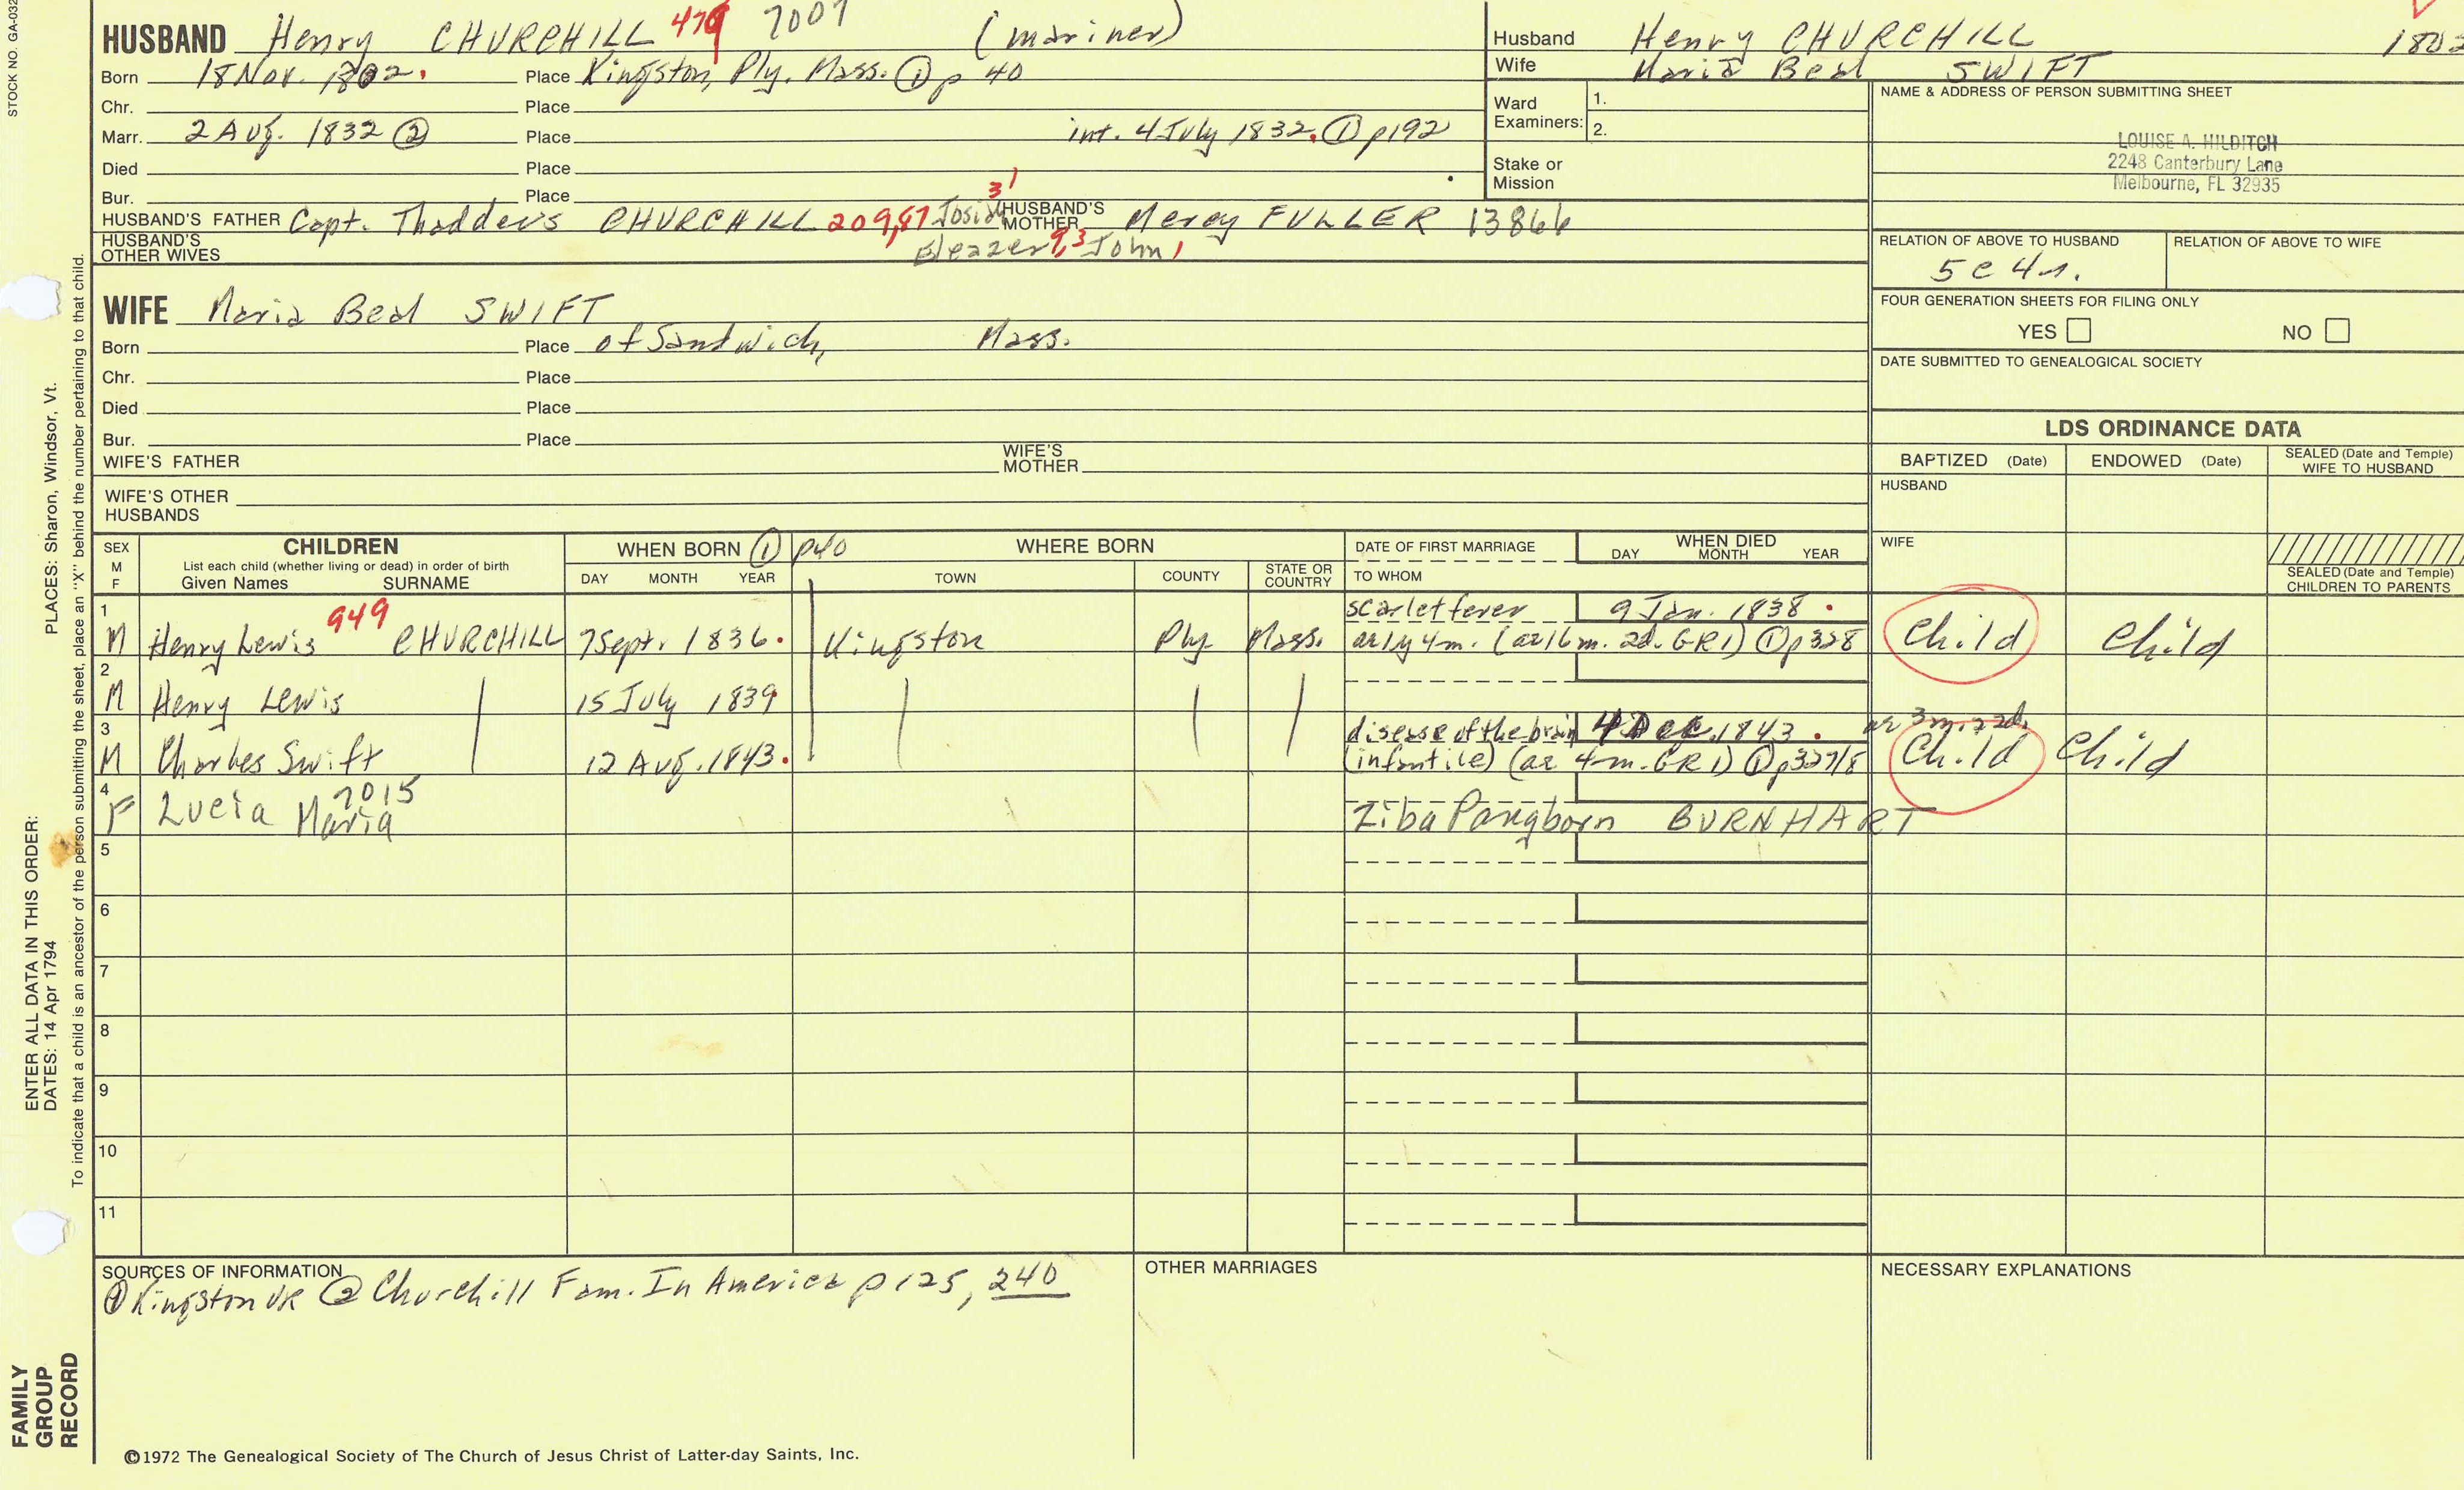 STOCK NO. GA-032
HUSBAND Henry CHURCHILL 479 7007 (mariner)
Born 18 Nov. 1802. Place Kingston, Ply. Mass. ① p 40
Chr. Place
Marr. 2 Aug. 1832 ② Place int. 4 July 1832. ① p192
Died Place
Bur. Place
HUSBAND'S FATHER Capt. Thaddeus CHURCHILL 209,87 Josiah 3' HUSBAND'S MOTHER Mercy FULLER 13866
HUSBAND'S OTHER WIVES Eleazer 9,3 John 1
Husband Henry CHURCHILL 1802
Wife Maria Beal SWIFT
Ward Examiners: 1.
2.
Stake or Mission
NAME & ADDRESS OF PERSON SUBMITTING SHEET
LOUISE A. HILDITCH
2248 Canterbury Lane
Melbourne, FL 32935
RELATION OF ABOVE TO HUSBAND RELATION OF ABOVE TO WIFE
5c4r.
WIFE Maria Beal SWIFT
Born Place of Sandwich, Mass.
Chr. Place
Died Place
Bur. Place
WIFE'S FATHER WIFE'S MOTHER
WIFE'S OTHER HUSBANDS
FOUR GENERATION SHEETS FOR FILING ONLY
YES NO
DATE SUBMITTED TO GENEALOGICAL SOCIETY
LDS ORDINANCE DATA
BAPTIZED (Date) ENDOWED (Date) SEALED (Date and Temple) WIFE TO HUSBAND
HUSBAND
WIFE
SEALED (Date and Temple) CHILDREN TO PARENTS
SEX M F CHILDREN List each child (whether living or dead) in order of birth Given Names SURNAME
WHEN BORN ① p40 DAY MONTH YEAR
WHERE BORN TOWN COUNTY STATE OR COUNTRY
DATE OF FIRST MARRIAGE TO WHOM
WHEN DIED DAY MONTH YEAR
1 scarlet fever 9 Jan. 1838.
M Henry Lewis 949 CHURCHILL 7 Sept. 1836. Kingston Ply. Mass. ae 1y 4m. (ae 16 m. 2d. GR1) ① p328 Child Child
2
M Henry Lewis 15 July 1839
3 disease of the brain 4 Dec. 1843. ae 3m. 22d.
M Charles Swift 12 Aug. 1843. (infantile) (ae 4m. GR1) ① p327/8 Child Child
4
F Lucia Maria 7015 Ziba Pangborn BURNHART
5
6
7
8
9
10
11
SOURCES OF INFORMATION
① Kingston VR ② Churchill Fam. In America p 125, 240
OTHER MARRIAGES
NECESSARY EXPLANATIONS
©1972 The Genealogical Society of The Church of Jesus Christ of Latter-day Saints, Inc.
FAMILY GROUP RECORD
ENTER ALL DATA IN THIS ORDER:
DATES: 14 Apr 1794 PLACES: Sharon, Windsor, Vt.
To indicate that a child is an ancestor of the person submitting the sheet, place an "X" behind the number pertaining to that child.